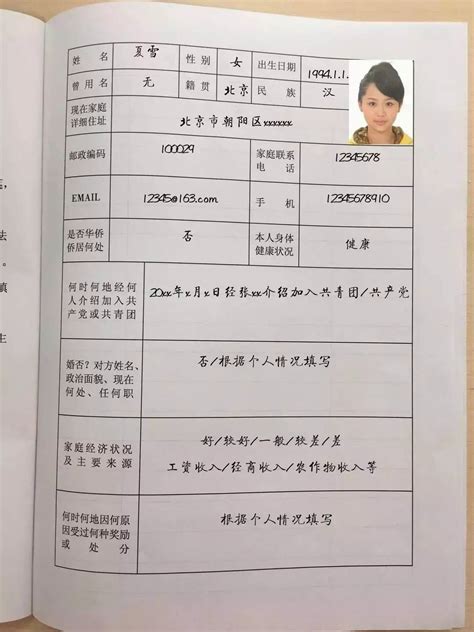 姓 名 夏雪 性别 女 出生日期 1994.1.1.
曾用名 无 籍贯 北京 民 族 汉
现在家庭
详细住址
北京市朝阳区xxxxxx
邮政编码 100029 家庭联系
电 话
12345678
EMAIL 12345@163.com 手 机 12345678910
是否华侨
侨居何处
否
本人身体
健康状况
健康
何时何地经何
人介绍加入共
产党或共青团
20xx年x月x日经张xx介绍加入共青团/共产党
婚否?对方姓名、
政治面貌、现在
何处、任何职
否/根据个人情况填写
家庭经济状况
及主要来源
好/较好/一般/较差/差
工资收入/经商收入/农作物收入等
何时何地因何原
因受过何种奖励
或处分
根据个人情况填写
法
。
主